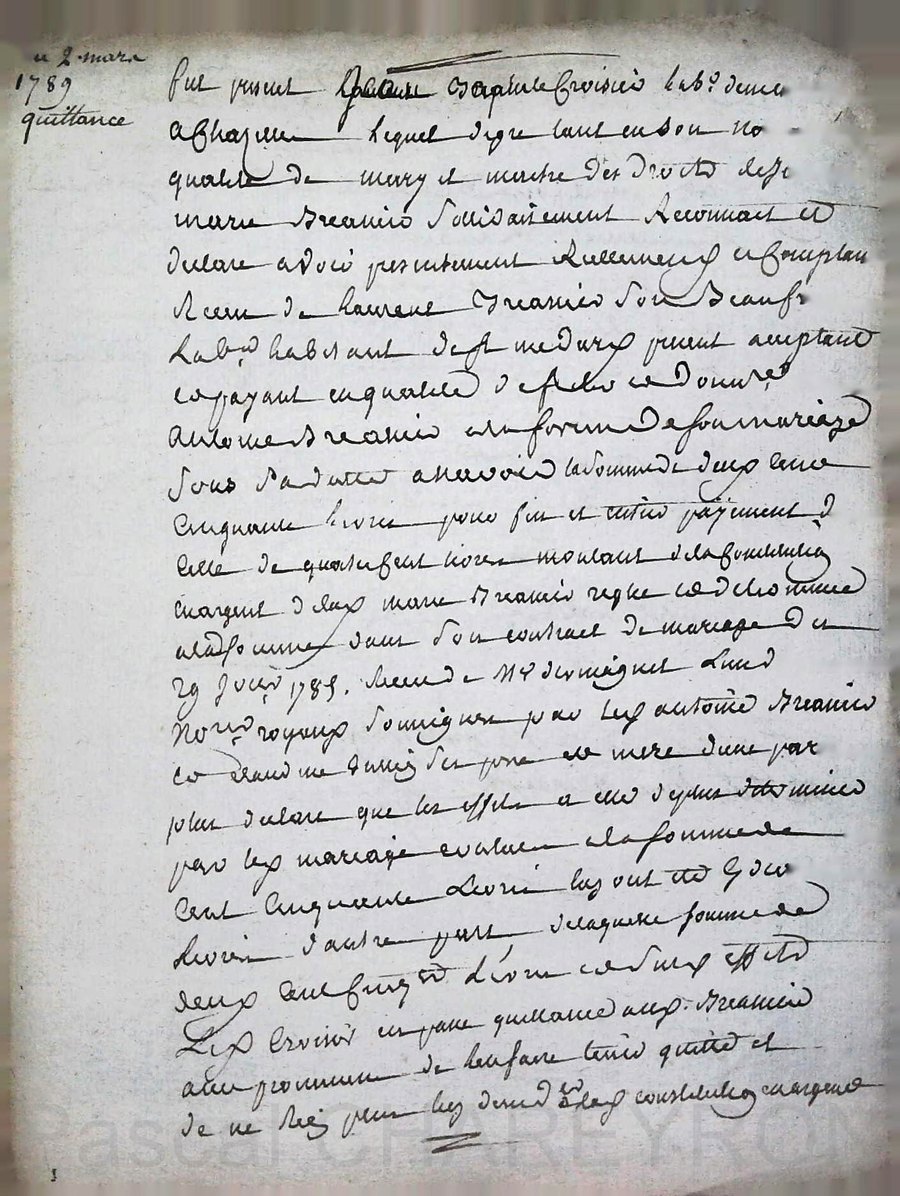 2 mars
1789
quittance
fut present Baptiste Croisier lab.r demeu
a Chazeaux lequel de gre tant en son no
qualite de mary et maitre des droits de
marie Breanier sollidairement Reconnait et
declare avoir presentement Reellement et Comptan
Receu de laurens Breanier son Beauf
Lab.r habitant de st medard present acceptant
et payant en qualite de et donn.re
antoine Breanier a la forme de son mariage
sous sa datte a scavoir la somme de deux Cent
Cinquante livres pour fin et entier payement d
Celle de quatre Cent livres montant de la Constitution
en argent de lad. marie Breanier
a lad. somme dans son contract de mariage du
29 1785. Receu de M.e
No.re royaux soussignes par led. antoine Breanier
et ses pere et mere d'une par
plus declare que les effets a elle de plus
par led. mariage evalues a la somme de
Cent Cinquante Livres luy ont ete
Livres d'autre part de laquelle somme de
deux Cent Cinq.te Livres et de susd. effets
Led. Croisier en passe quittance aud. Breanier
avec promesse de l'en faire tenir quitte et
de ne Rien plus luy demander de lad. constitution en argent
Pascal CHAREYRON